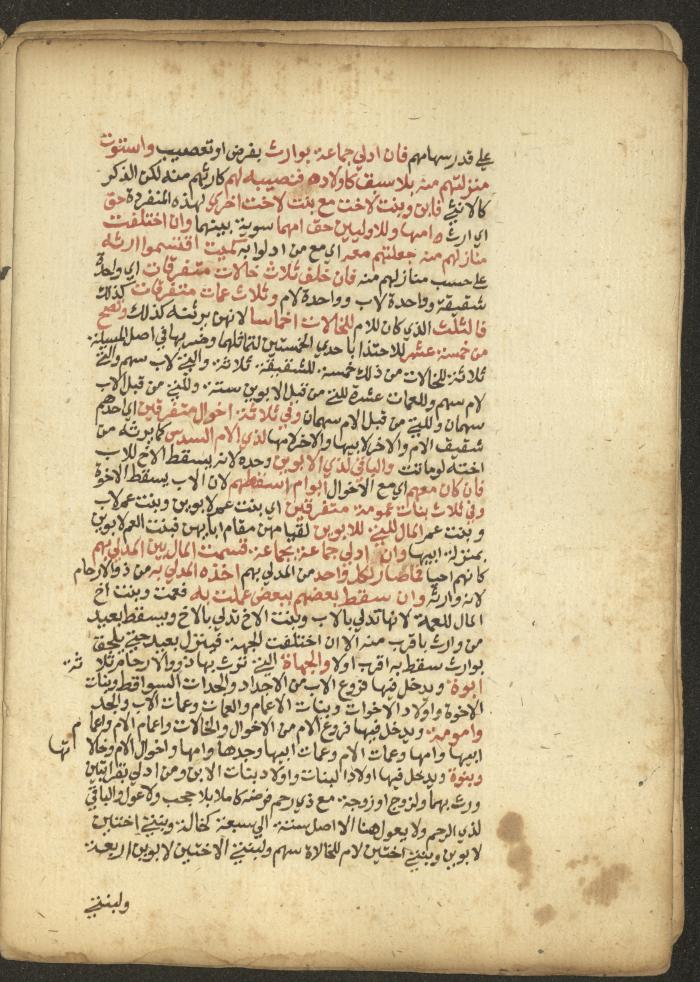 على قدر سهامهم فان ادلى جماعة بوارث بفرض او تعصيب واستوت
منزلتهم منه بلا سبق كاولاده فنصيبه لهم كارثهم منه لكن الذكر
كالانثى فابن وبنت لاخت مع بنت لاخت اخرى لهذه المنفردة حق
اي ارث امها وللاوليين حق امهما سوية بينهما وان اختلفت
منازلهم منه جعلتهم معه اي مع من ادلوا به كميت اقتسموا ارثه
على حسب منازلهم منه فان خلف ثلاث خالات متفرقات اي واحدة
شقيقة وواحدة لاب وواحدة لام وثلاث عمات متفرقات كذلك
فالثلث الذي كان للام للخالات اخماسا لانهن يرثنه كذلك وتصح
من خمسة عشر للاجتزا باحدى الخمستين لتماثلهما وضربها في اصل المسيلة
ثلاثة للخالات من ذلك خمسة للشقيقة ثلاثة والتي لاب سهم والتي
لام سهم وللعمات عشرة للتي من قبل الابوين ستة وللتي من قبل الاب
سهمان وللتي من قبل الام سهمان وفي ثلاثة اخوال متفرقين اي احدهم
شقيق الام والاخر لابيها والاخر لامها لذي الام السدس كما يرثه من
اخته لو ماتت والباقي لذي الابوين وحده لانه يسقط الاخ للاب
فان كان معهم اي مع الاخوال ابو ام اسقطهم لان الاب يسقط الاخوة
وفي ثلاث بنات عمومة متفرقين اي بنت عم لابوين وبنت عم لاب
وبنت عم المال للتي للابوين لقيامهن مقام ابايهن فبنت العم لابوين
بمنزلة ابيها وان ادلى جماعة بجماعة قسمت المال بين المدلى بهم
كانهم احيا فما صار لكل واحد من المدلى بهم اخذه المدلي به من ذوي الارحام
لانه وارثه وان سقط بعضهم ببعض عملت به فعمة وبنت اخ
المال للعمة لانها تدلي بالاب وبنت الاخ تدلي بالاخ ويسقط بعيد
من وارث باقرب منه الا ان اختلفت الجهة فينزل بعيد حتى يلحق
بوارث سقط به اقرب اولا والجهات التي تورث بها ذووا الارحام ثلاثة
ابوة ويدخل فيها فروع الاب من الاجداد والجدات السواقط وبنات
الاخوة واولاد الاخوات وبنات الاعمام والعمات وعمات الاب والجد
وامومة ويدخل فيها فروع الام من الاخوال والخالات واعمام الام واعمام
ابيها وامها وعمات الام وعمات ابيها وجدها وامها واخوال الام وخالاتها
وبنوة ويدخل فيها اولاد البنات واولاد بنات الابن ومن ادلى بقرابتين
ورث بهما ولزوج او زوجة مع ذي رحم فرضه كاملا بلا حجب ولا عول والباقي
لذي الرحم ولا يعول هنا الا اصل ستة الى سبعة كخالة وبنتي اختين
لابوين وبنتي اختين لام للخالة سهم ولبنتي الاختين لابوين اربعة
ولبنتي